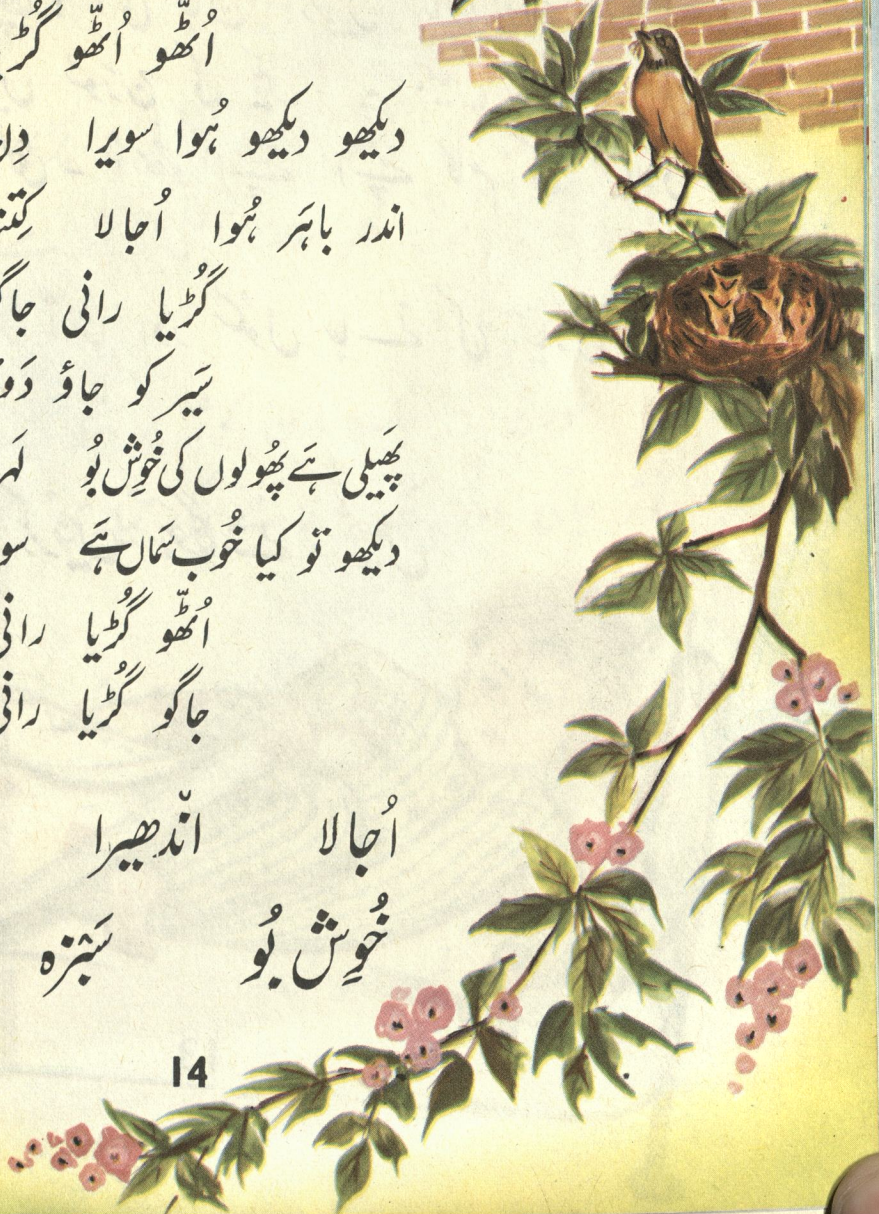 اُٹھّو اُٹھّو
دیکھو دیکھو ہُوا سویرا
اندر باہَر ہُوا اُجالا
گُڑیا رانی
سَیر کو جاؤ
پھَیلی ہَے پھُولوں کی خُوِش بُو
دیکھو تو کیا خُوب سَماں ہَے
اُٹھّو گُڑیا رانی
جاگو گُڑیا رانی
اُجالا اندھیرا
خُوِش بُو سَبْزہ
14